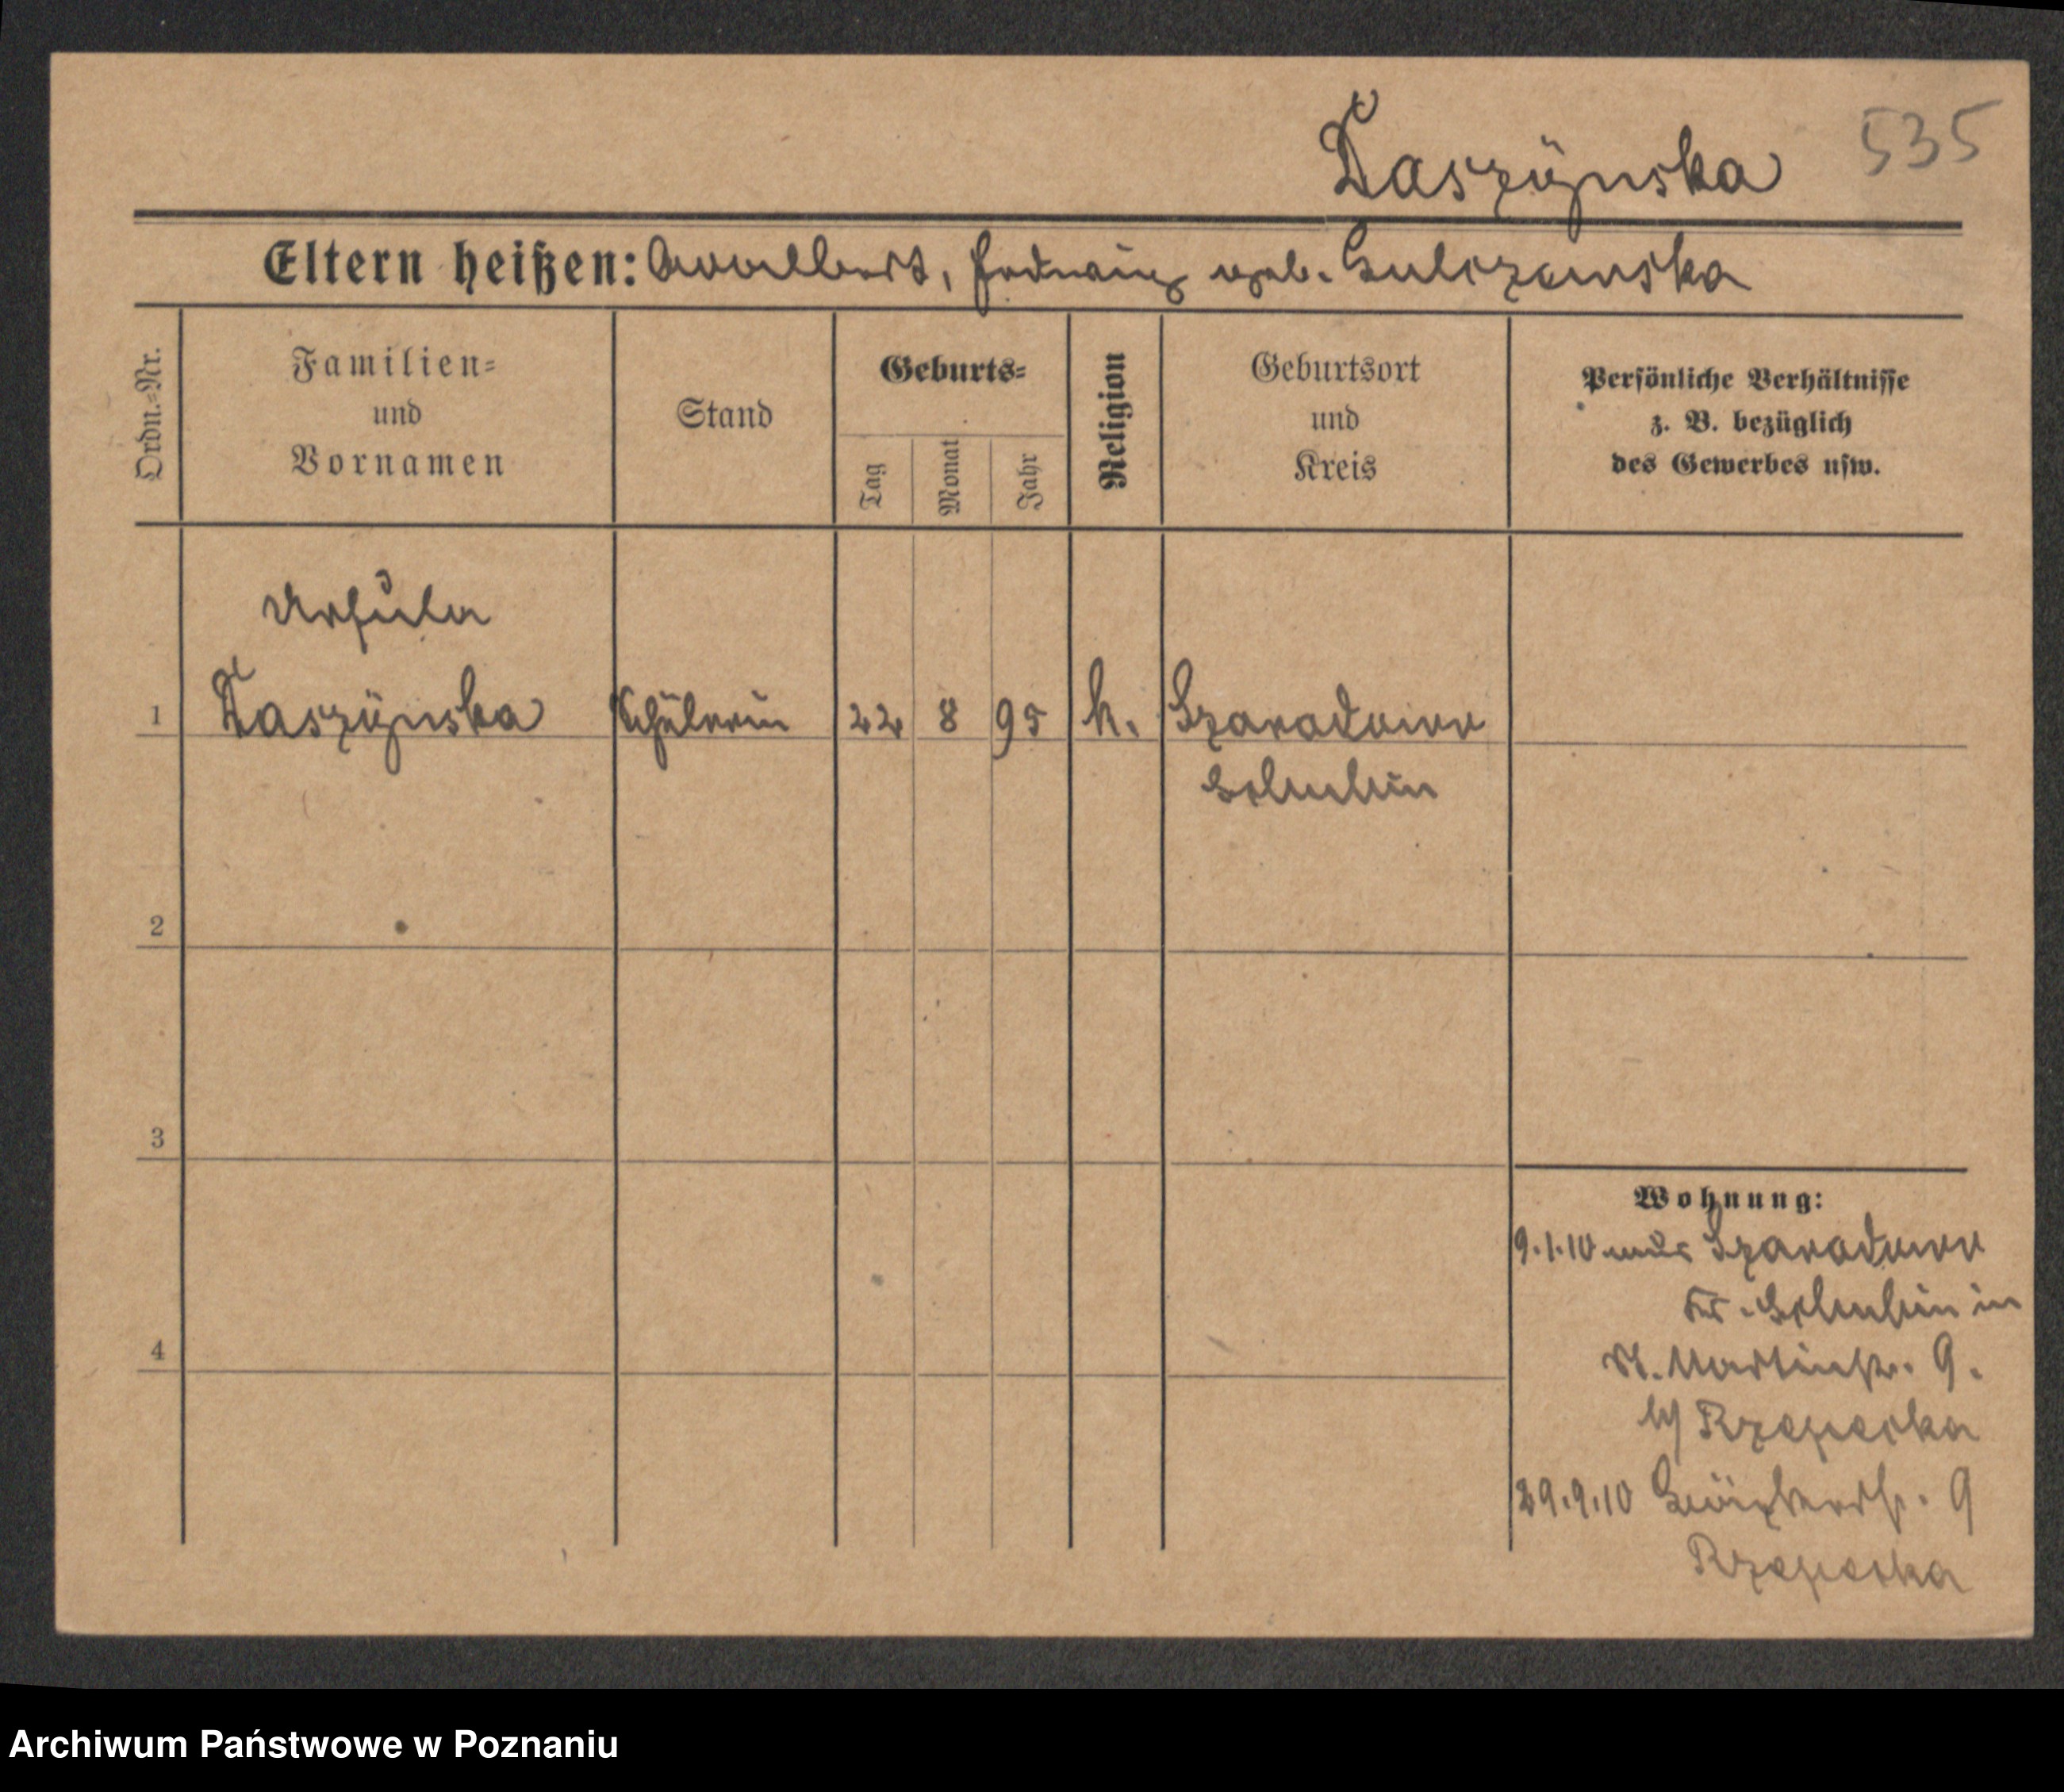 Daszyńska 535
Eltern heißen: Adalbert, Hedwig geb. Sulczewska
Ordn.=Nr.
Familien=
und
Vornamen
Stand
Geburts=
Tag
Monat
Jahr
Religion
Geburtsort
und
Kreis
Persönliche Verhältnisse
z. B. bezüglich
des Gewerbes usw.
Ursula
1 Daszyńska Schülerin 22 8 95 k. Szaradowo
Schubin
2
3
4
Wohnung:
9.1.10 aus Szaradowo
Kr. Schubin in
St. Martinstr. 9.
b/ Rzepecka
29.9.10 9
Rzepecka
Archiwum Państwowe w Poznaniu